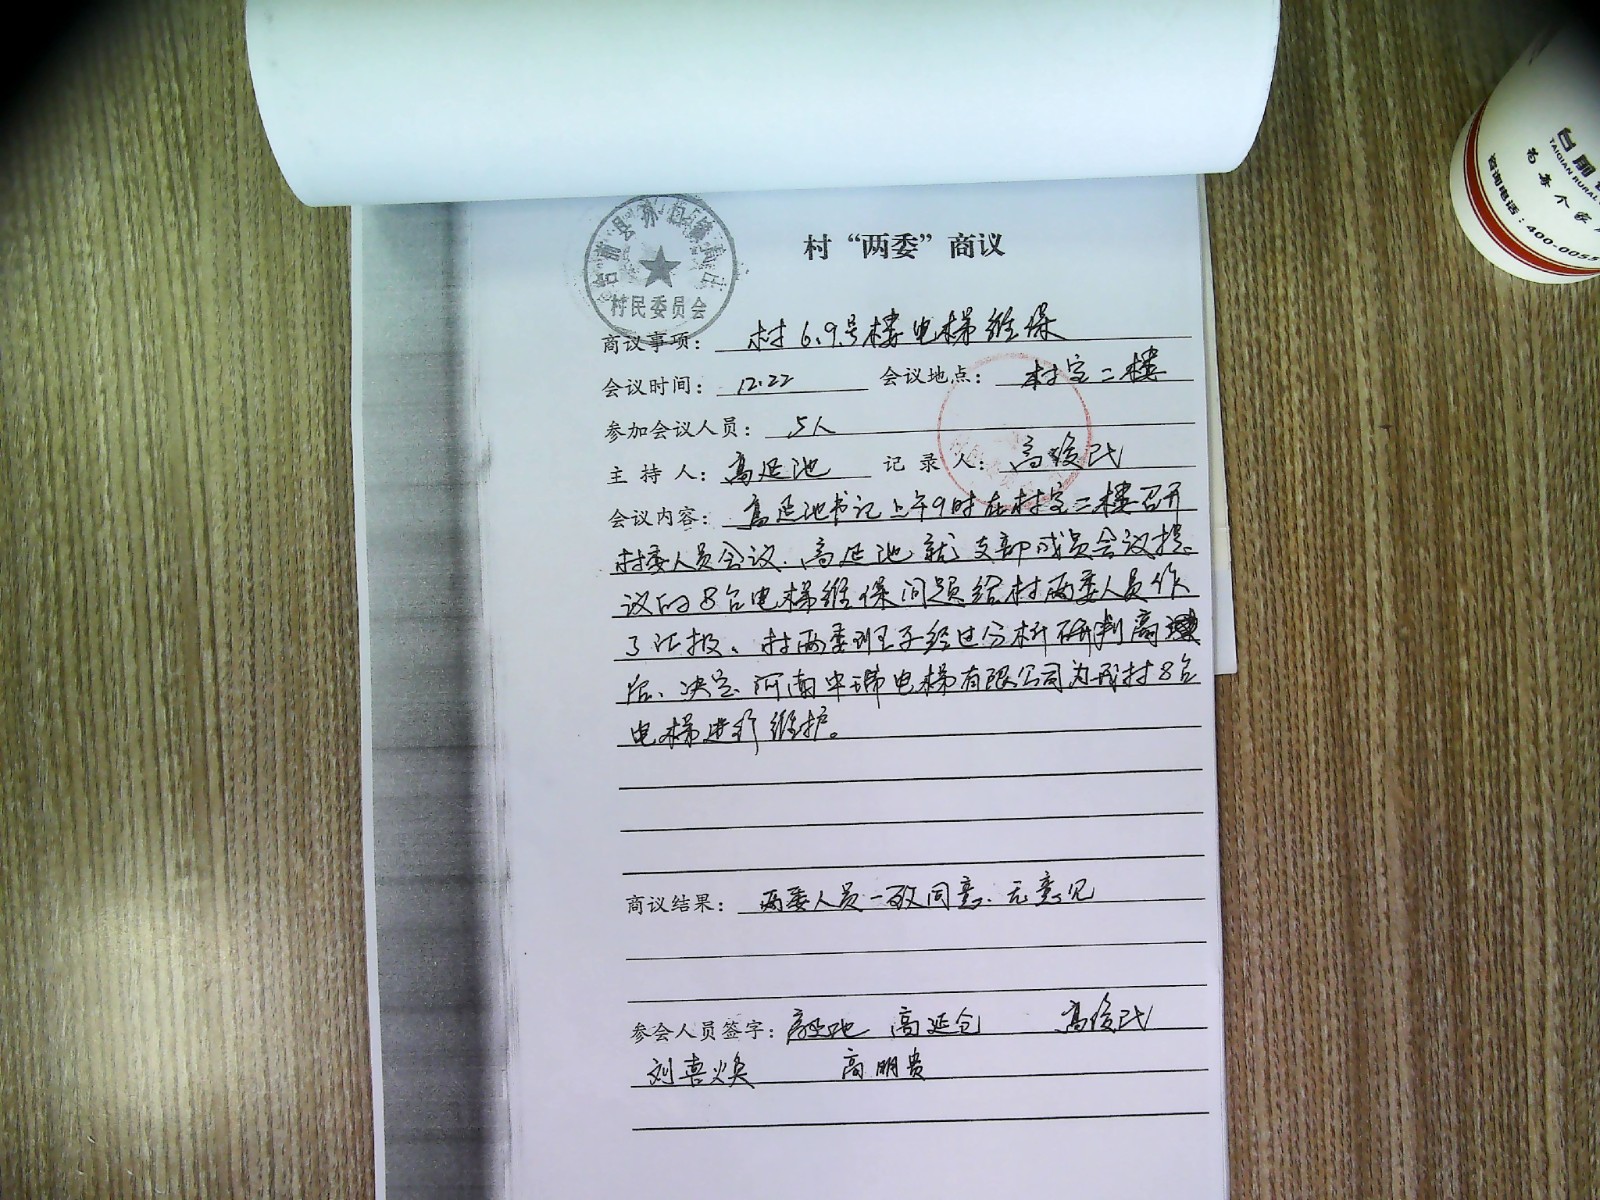 村“两委”商议
村民委员会
商议事项：村6.9号楼电梯维保
会议时间：12.22 会议地点：村室二楼
参加会议人员：5人
主持人：高延池 记录人：高俊民
会议内容：高延池书记上午9时在村室二楼召开
村委人员会议.高延池就支部成员会议提
议的8台电梯维保问题给村两委人员作
了汇报。村两委班子经过分析研判高
后、决定河南中瑞电梯有限公司为我村8台
电梯进行维护。
商议结果：两委人员一致同意、无意见
参会人员签字：高延池 高延仓 高俊民
刘喜焕 高明贵
TAIQIAN RURAL
咨询电话：400-0055